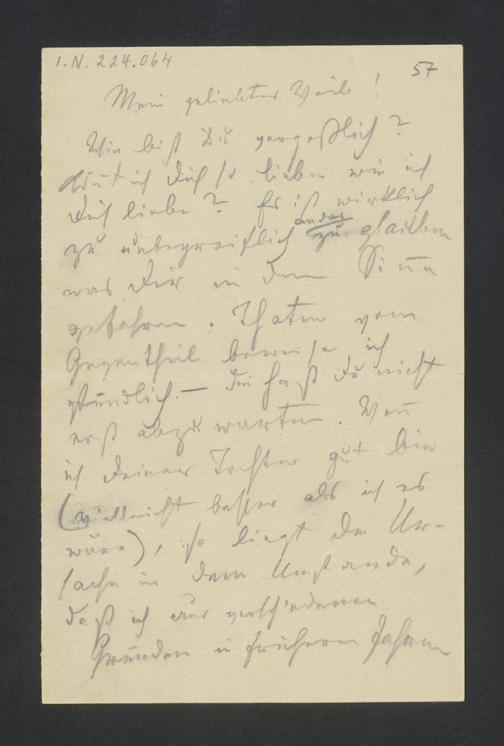 I.N. 224.064
57
Mein geliebtes Weib!
Wie bist Du vergeßlich?
ich Dich so lieben wie ich
Dich liebe? Es ist wirklich
zu unbegreiflich anders zu glauben
was Dir in den Sinn
gefahren. Thaten vom
Gegentheil beweise ich
stündlich. – Die hast Du nicht
erst abzuwarten. Wenn
ich Deiner Tochter gut bin
(vielleicht besser als ich es
wäre), so liegt die Ur-
sache in dem Umstande,
daß ich aus verschiedenen
Gründen in frühern Jahren